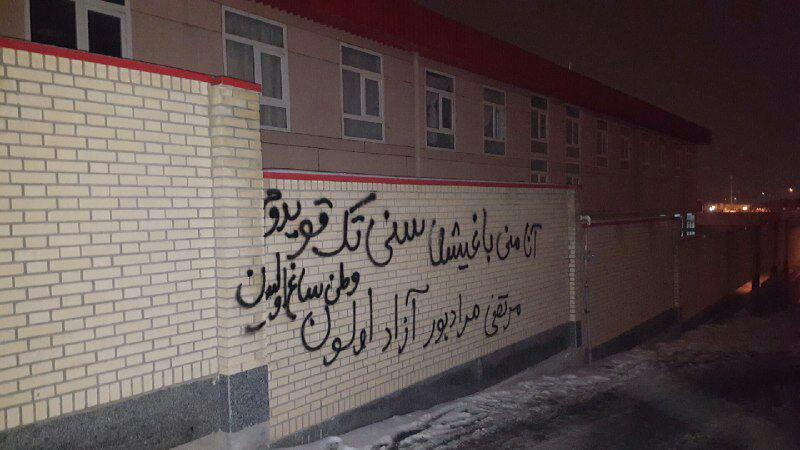 آنا منی باغیشلا سنی تک قویدوم
وطن ساغ اولسون
مرتضی مرادپور آزاد اولون